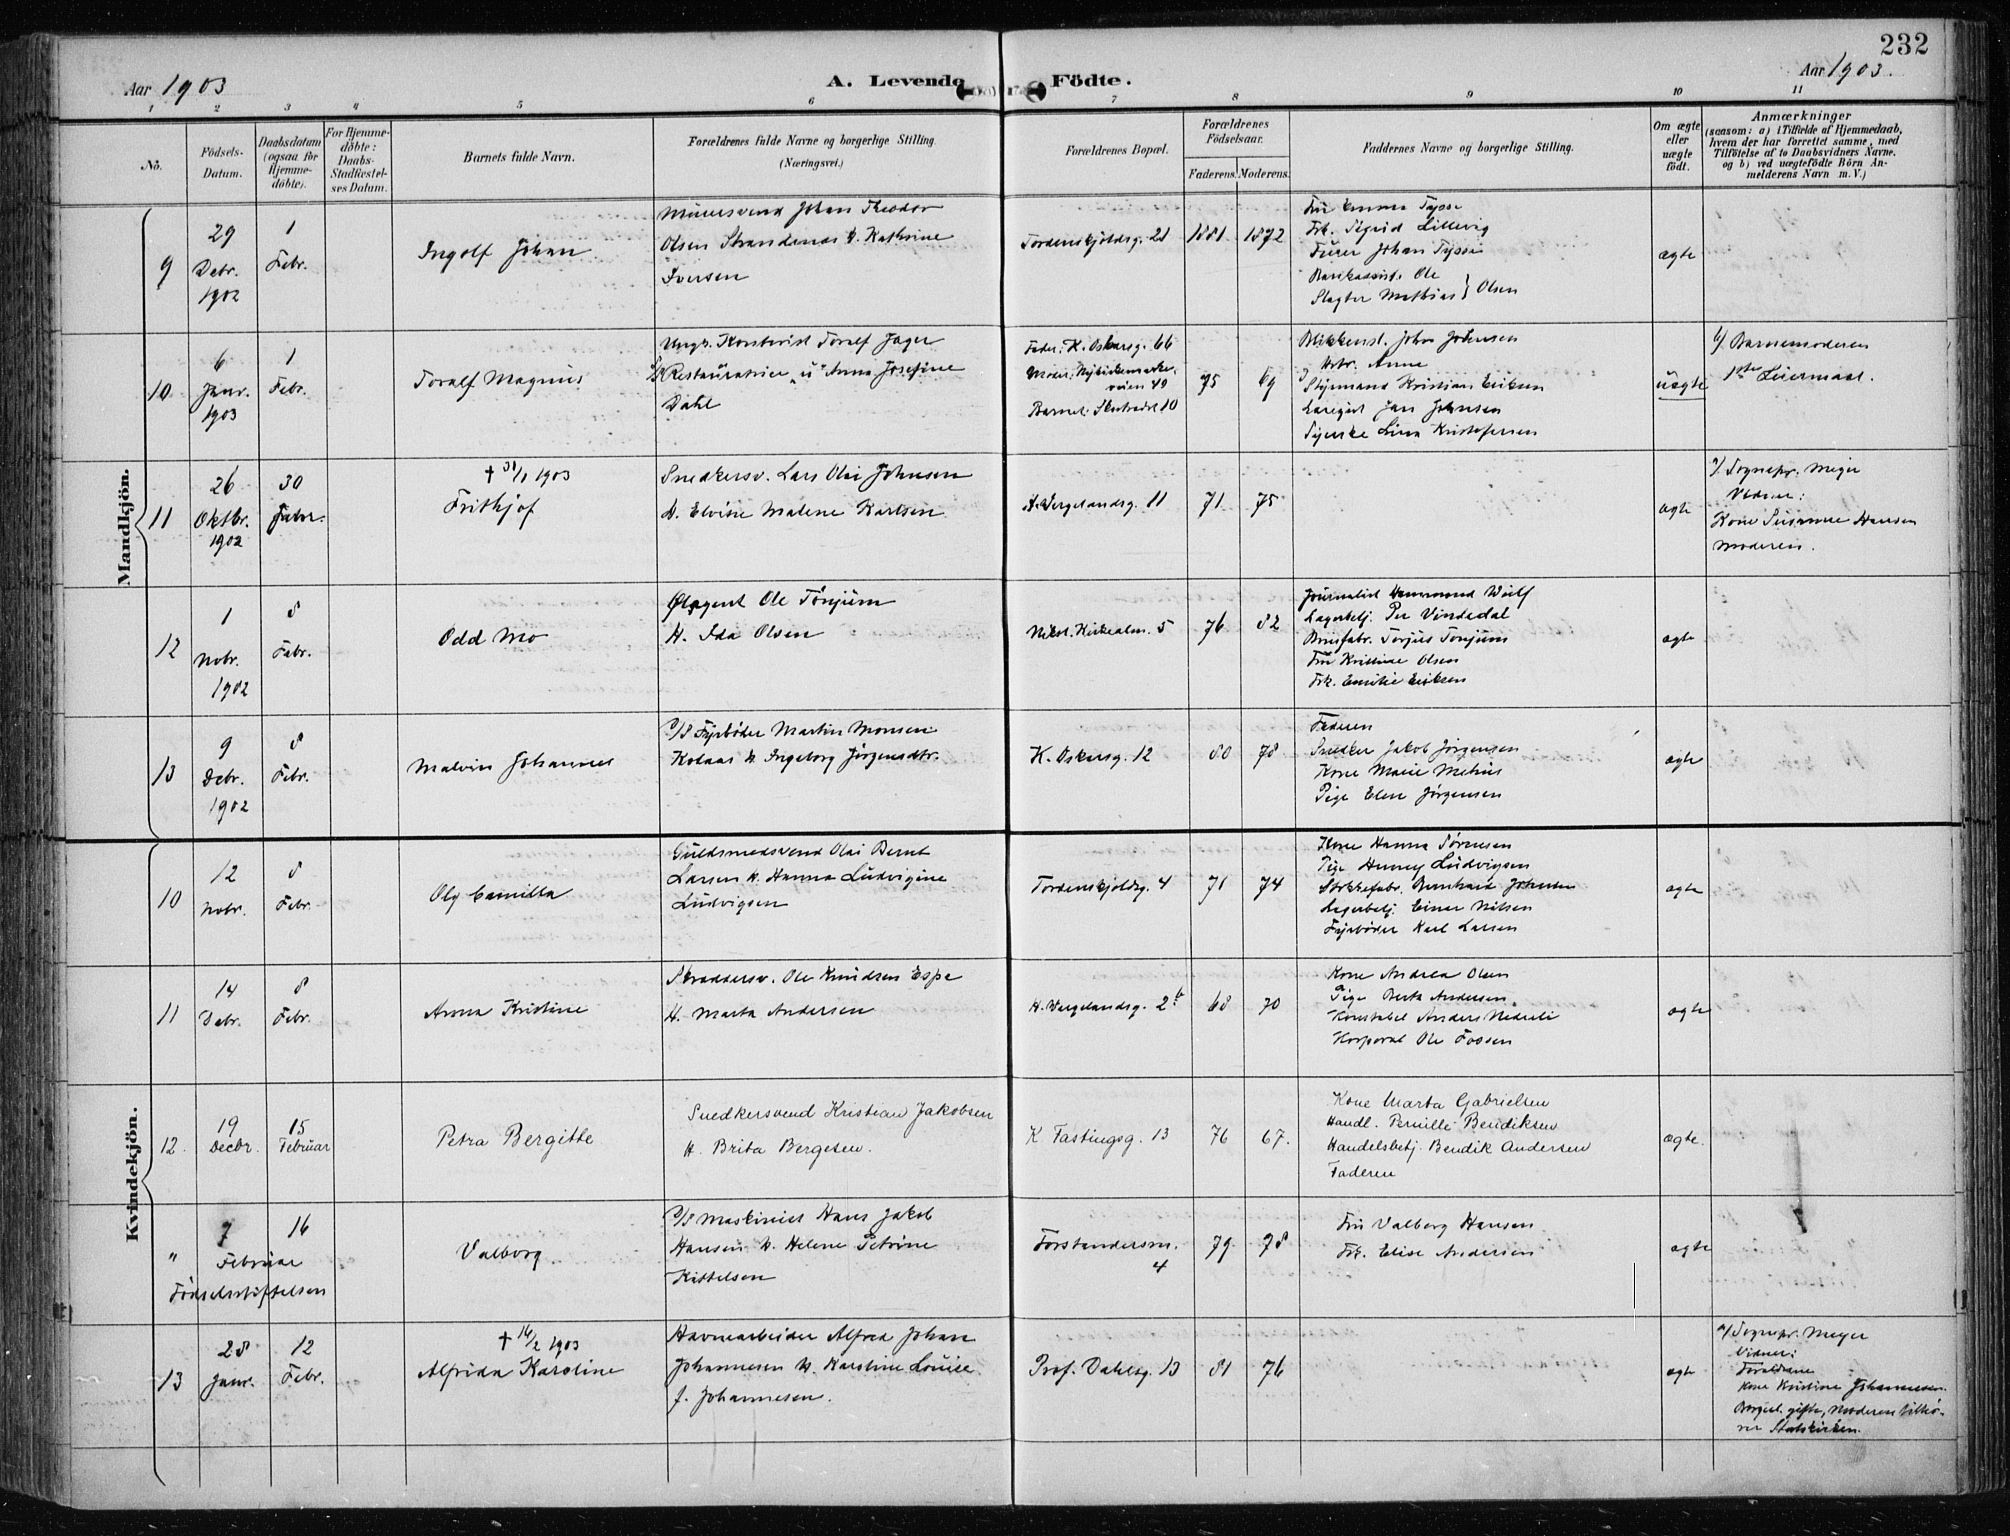 232
Aar 1903
A. Levende Födte.
Aar 1903.
1 2 3 4 5 6 7 8 9 10 11
No.
Födsels-
Datum.
Daabsdatum
(ogsaa for
Hjemme-
döbte).
For Hjemme-
döbte:
Daabs-
Stadfæstel-
ses Datum.
Barnets fulde Navn.
Forældrenes fulde Navne og borgerlige Stilling
(Næringsvei.)
Forældrenes Bopæl.
Forældrenes
Födselsaar.
Faderens. Moderens.
Faddernes Navne og borgerlige Stilling.
Om ægte
eller
uægte
födt.
Anmærkninger
(saasom: a) i Tilfælde af Hjemmedaab,
hvem der har forrettet samme, med
Tilföielse af to Daabsvidners Navne,
og b) ved uægtefödte Börn An-
melderens Navn m.V.)
Mandkjön.
9
29
Debr.
1902
1
Febr.
Ingolf Johan
Murersvend Johan Theodor
Olsen Strandenæs & Kathrine
Iversen
Tordenskjoldsg. 21
1881 1872
Fru Emma Tysse
Frk. Sigrid Lillevig
Furer Johan Tysse
Ole
Slagter Mathias } Olsen
ægte
10
6
Janr.
1903
1
Febr.
Toralf Magnus
Ungk. Toralf Jager
Restauratrice "u" Anna Josefine
Dahl
Fader: K. Oskarsg. 66
Moder:
veien 49
Barnet: 10
75 69
Blikkensl. John Johnsen
Hstr. Anne
Styrmand Kristian Eriksen
Jan Johnsen
Syerske Lina Kristofersen
uægte
b/ Barnemoderen
1ste Leiermaal.
11
26
Oktbr.
1902
30
Janr.
† 31/1 1903
Fritkjof
Snedkersv. Lars Olai Johnsen
H. Elvine Malene Karlsen
H. Wergelandsg. 11
71 75
ægte
a/ Sognepr. Meyer
Vidner:
Kone Susanne Hansen
Moderen.
12
1
Nobr.
1902
8
Febr.
Odd Mo
Ølagent Ole Tönjum
H. Ida Olsen
Nykirkealm. 5
76 82
Journalist Hammond Wulf
Lagerbetj. Per Vindedal
Brusfabr. Torjus Tonjum
Fru Kristine Olsen
Frk. Emilie Eriksen
ægte
13
9
Debr.
1902
8
Febr.
Malvin Johannes
D/S Fyrböder Martin Monsen
Kolaas & Ingeborg Jörgensdtr.
K. Oskarsg. 12
80 78
Faderen
Snedker Jakob Jörgensen
Kone Marie Metius
Pige Elen Jörgensen
ægte
Kvindekjön.
10
12
Nobr.
8
Febr.
Olg Camilla
Guldsmedsvend Olai Bernt
Larsen & Hanna Ludvigine
Ludvigsen
Tordenskjoldsg. 4
71 74
Kone Hanna Sörensen
Pige Henny Ludvigsen
Bernhard Johnsen
Lagerbetj. Einar Nilsen
Fyrböder Karl Larsen
ægte
11
14
Debr.
8
Febr.
Anna Kristine
Skræddersv. Ole Knudsen Espe
H. Marta Andersen
H. Wergelandsg. 2b
68 70
Kone Andrea Olsen
Pige Berta Andersen
Konstabel Anders Nedreli
Korporal Ole Fossen
ægte
12
19
Decbr.
15
Februar
Petra Bergitte
Snedkersvend Kristian Jakobsen
H. Brita Bergesen.
K Fastingsg. 13
76 67.
Kone Marta Gabrielsen
Handl. Pernille Bendiksen
Handelsbetj. Bendik Andersen
Faderen
ægte.
"
7
Februar
Födselsstiftelsen
16
Valborg
D/S Maskinist Hans Jakob
Hansen & Helene Petrine
Kittelsen
Forstandersm.
4
79 78
Fru Valborg Hansen
Frk. Elise Andersen
ægte
13
28
Janr.
12
Febr.
† 14/2 1903
Alfrida Karoline
Havnearbeider Alfred Johan
Johannesen & Karoline Louise
f. Johannesen.
Prof. Dahlsg. 13
81 76
ægte
a/ Sognepr. Meyer
Vidner:
Forældrene
Kone Kristine Johannesen.
Borgerl. gifte, Moderen tilhö-
rer Statskirken.